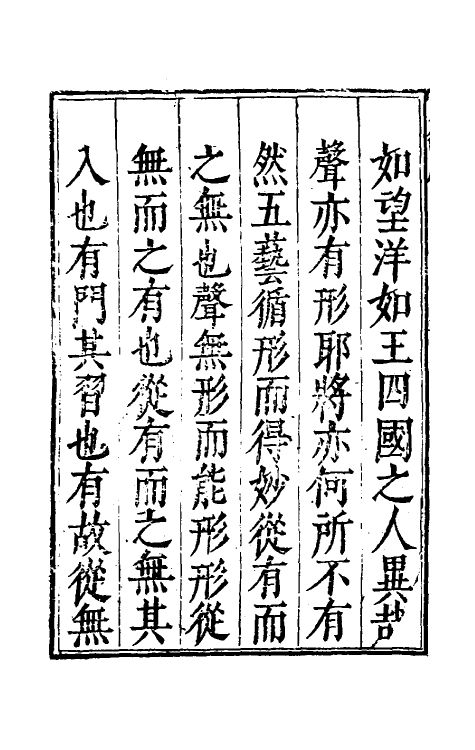 如望洋如王四國之人異哉
聲亦有形耶將亦何所不有
然五藝循形而得妙從有而
之無也聲無形而能形形從
無而之有也從有而之無其
入也有門其習也有故從無